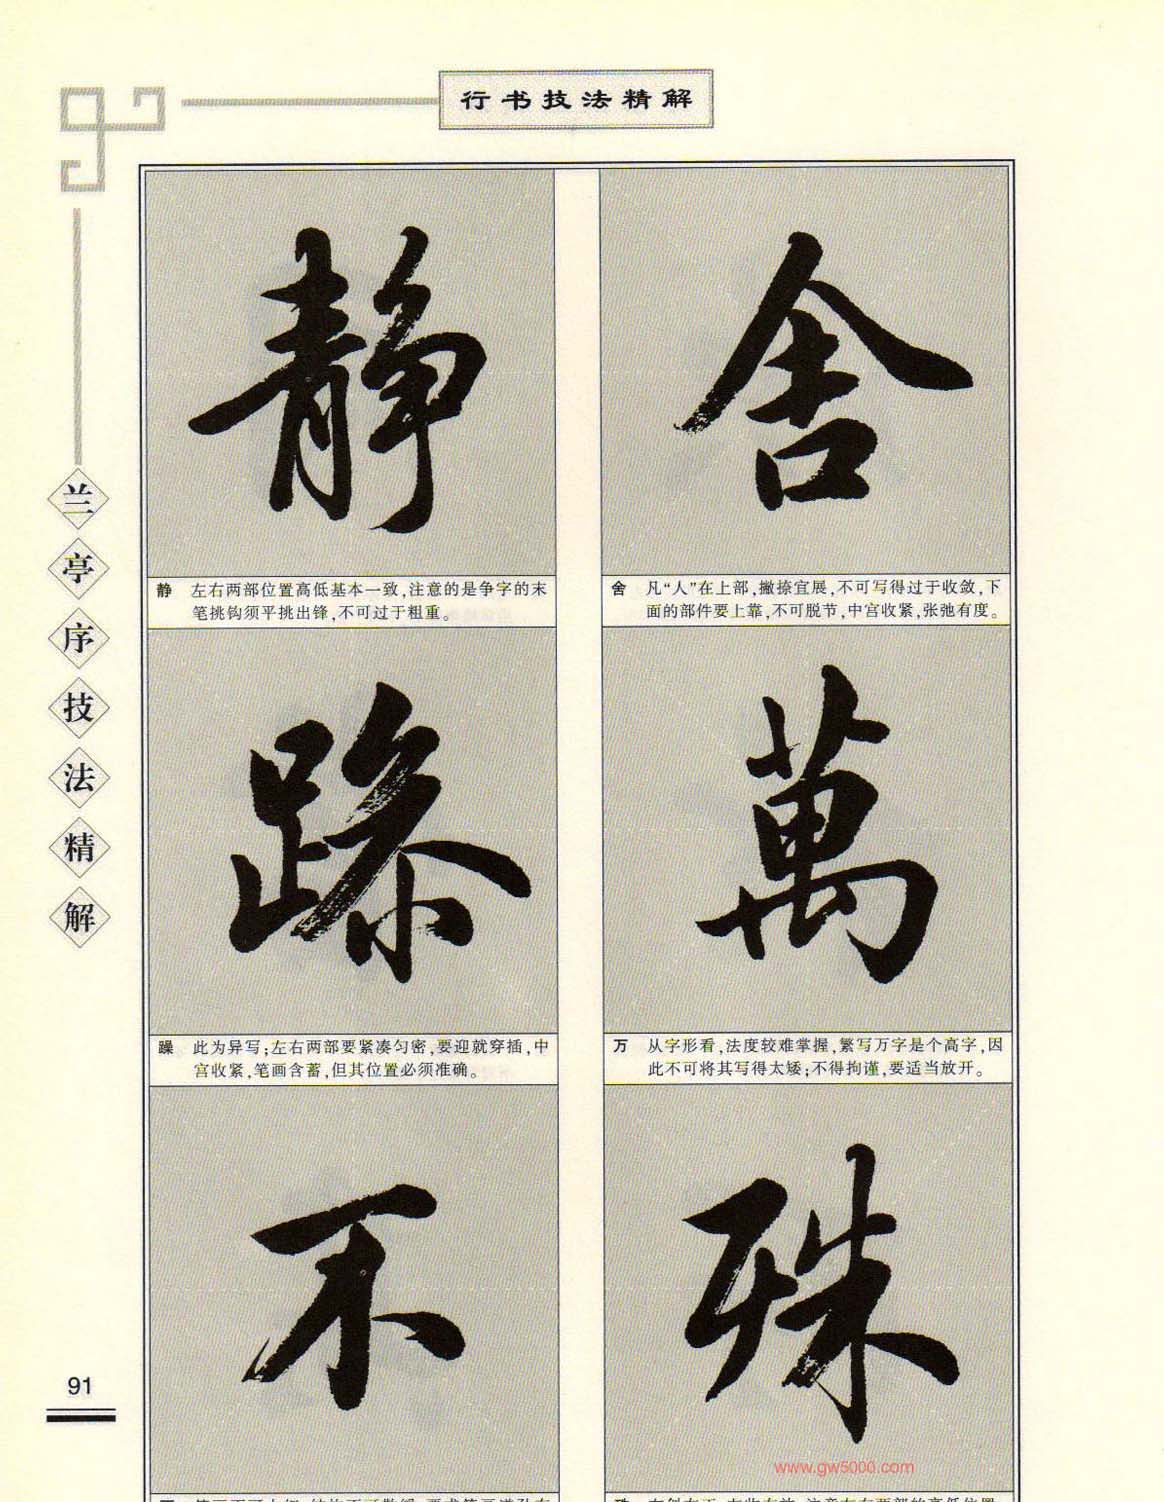 行书技法精解
兰亭序技法精解
静
静 左右两部位置高低基本一致,注意的是争字的末
笔挑钩须平挑出锋,不可过于粗重。
舍
舍 凡“人”在上部,撇捺宜展,不可写得过于收敛,下
面的部件要上靠,不可脱节,中宫收紧,张弛有度。
躁
躁 此为异写;左右两部要紧凑匀密,要迎就穿插,中
宫收紧,笔画含蓄,但其位置必须准确。
萬
万 从字形看,法度较难掌握,繁写万字是个高字,因
此不可将其写得太矮;不得拘谨,要适当放开。
不
殊
91
www.gw5000.com